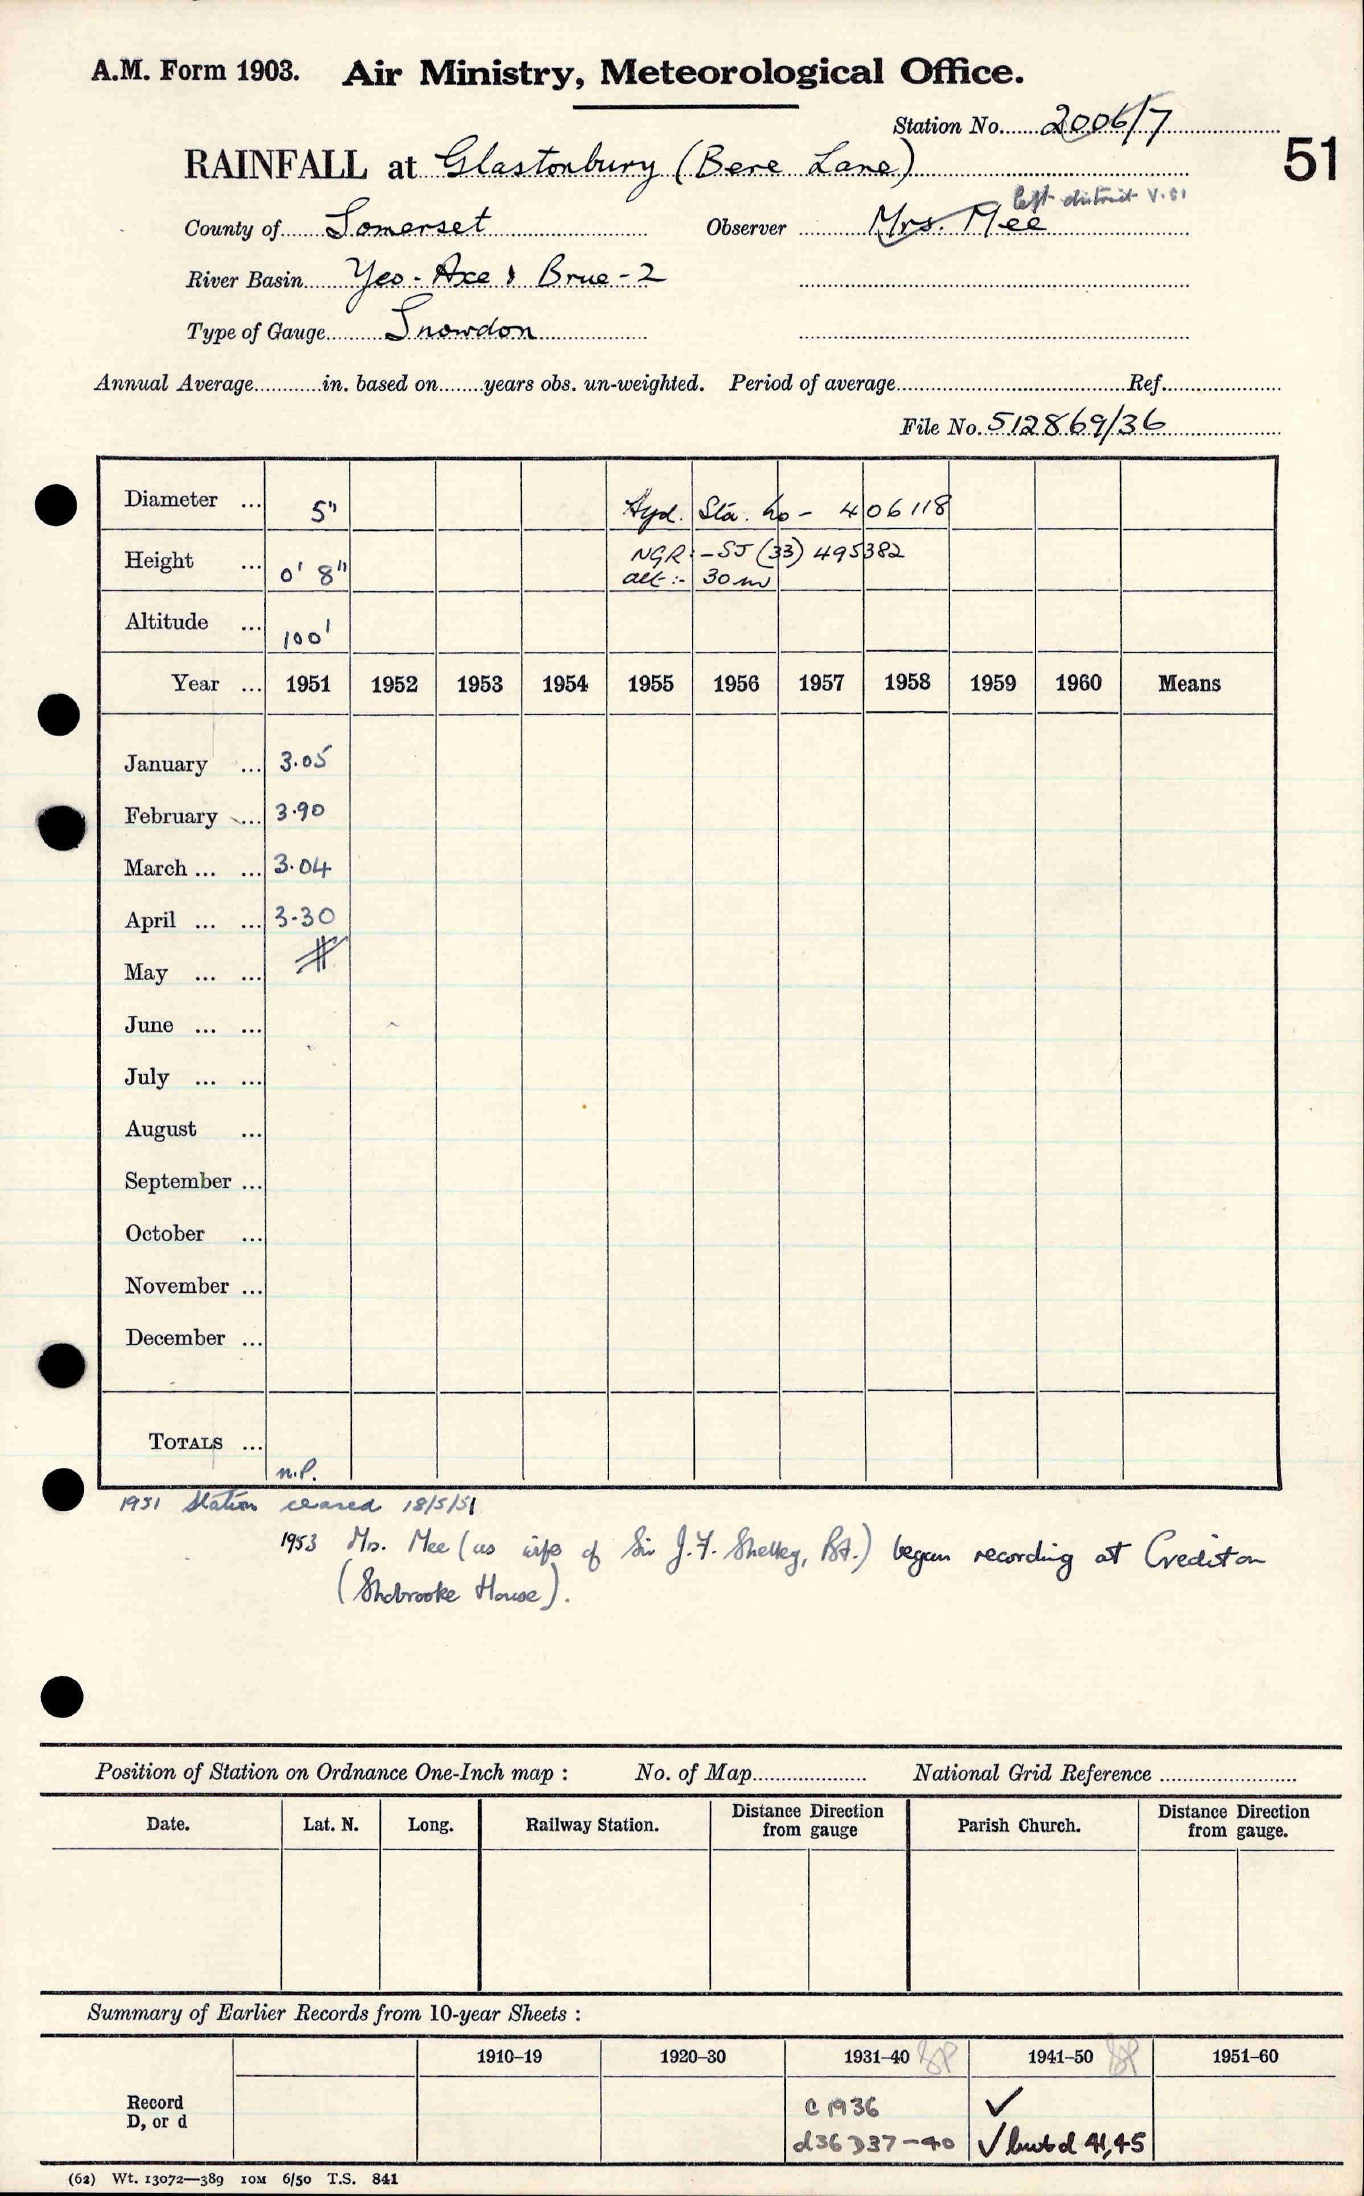 A.M. Form 1903. Air Ministry, Meteorological Office.
Station No. 2006/7
51
RAINFALL at Glastonbury (Bere Lane)
left district V.51
County of Somerset Observer Mrs. Mee
River Basin Yeo - Axe & Brue - 2
Type of Gauge Snowdon
Annual Average in. based on years obs. un-weighted. Period of average Ref.
File No. 512869/36
Diameter ... 5" Hyd. Sta. No - 406118
Height ... 0' 8" NGR:- ST (33) 495382
alt:- 30m
Altitude ... 100'
Year ... 1951 1952 1953 1954 1955 1956 1957 1958 1959 1960 Means
January ... 3.05
February ... 3.90
March ... ... 3.04
April ... ... 3.30
May ... ...
June ... ...
July ... ...
August ...
September ...
October ...
November ...
December ...
TOTALS ...
n.P.
1951 Station ceased 18/5/51
1953 Mrs. Mee (as wife of Sir J.F. Shelley, Bt.) began recording at Crediton
(Shobrooke House).
Position of Station on Ordnance One-Inch map : No. of Map National Grid Reference
Date. Lat. N. Long. Railway Station. Distance from gauge Direction Parish Church. Distance from gauge. Direction
Summary of Earlier Records from 10-year Sheets :
1910–19 1920–30 1931–40 1941–50 1951–60
Record C 1936 ✓
D, or d d36 D37-40 ✓ but d 41,45
(62) Wt. 13072—389 10M 6/50 T.S. 841